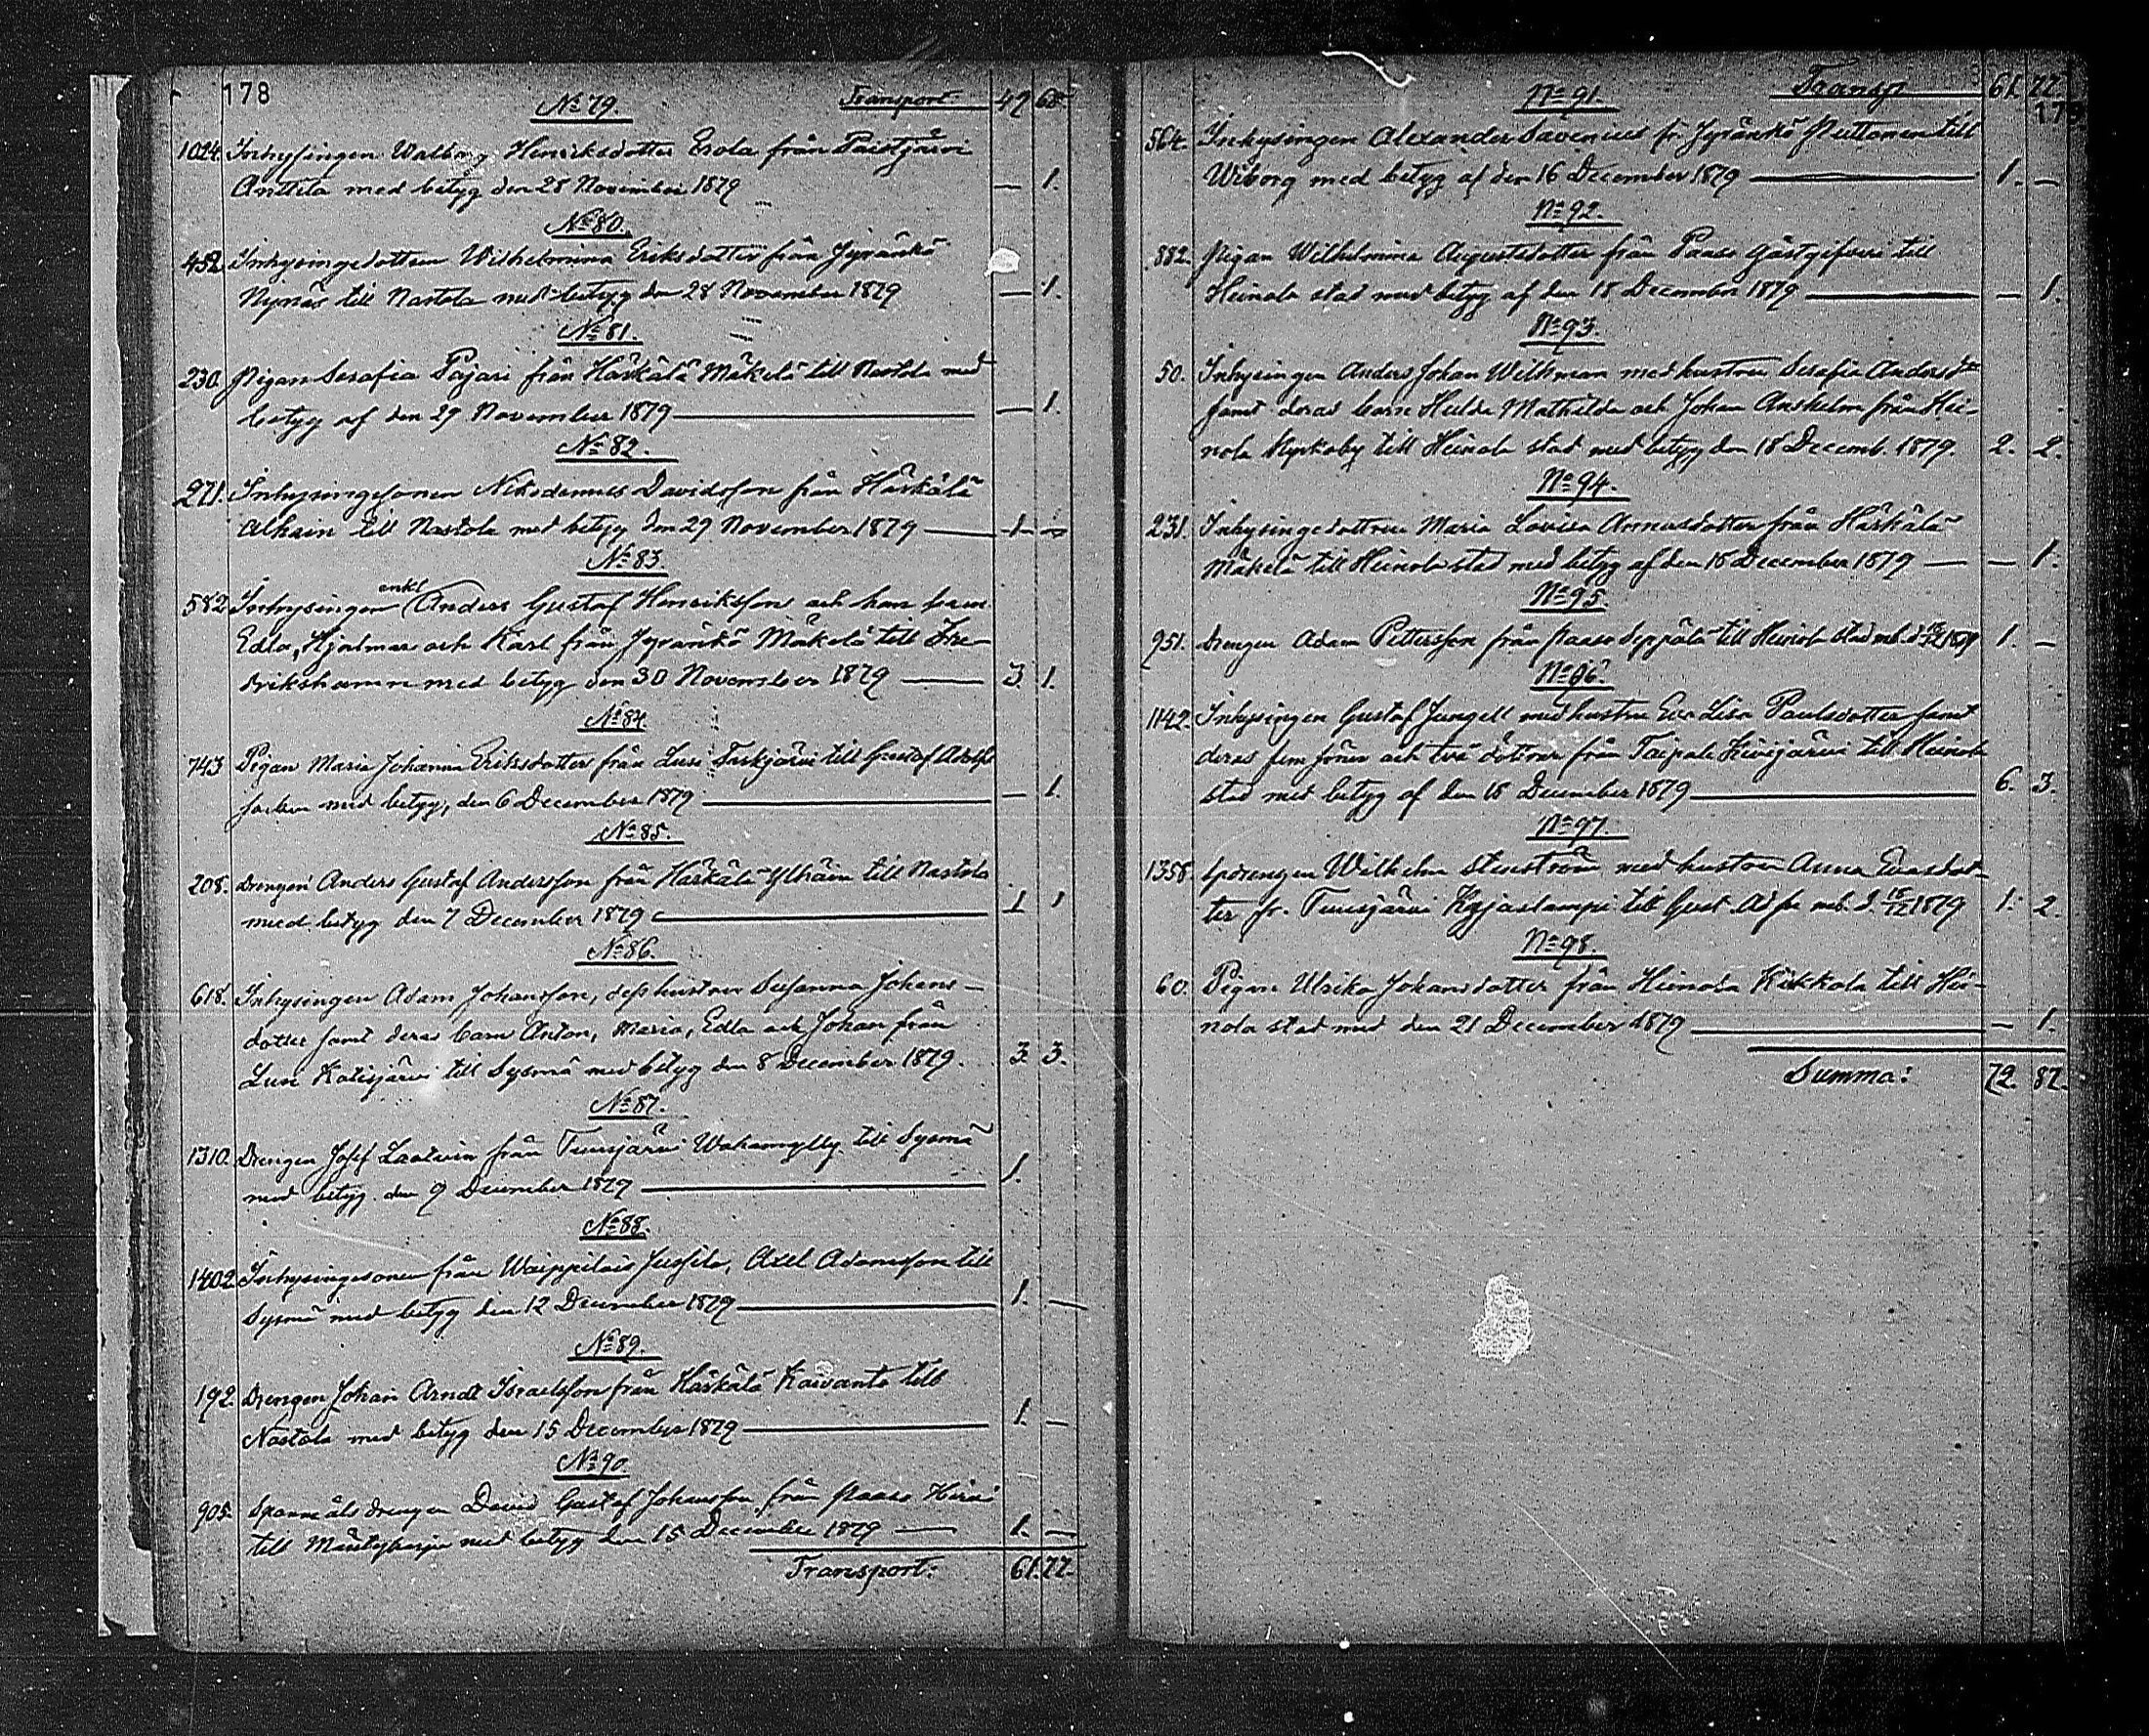 178
No 79. Transport 42 68
1024. Inhysingen Walborg Henriksdotter Erola från Paistjärvi
Anttila med betyg den 28 November 1879 — 1.
No 80.
452 Inhysingedottren Wilhelmina Eriksdotter från Jyränkö
Nynäs till Nastola med betyg den 28 November 1879 — 1.
No 81.
230. Pigan Serafia Pajari från Härkälä Mäkelä till Nastola med
betyg af den 29 November 1879 — 1.
No 82.
271. Inhysingesonen Nikodemus Davidsson från Härkälä
Alhain till Nastola med betyg den 29 November 1879 — 1. —
No 83.
582 Inhysingen enkl. Anders Gustaf Henriksson och hans barn
Edla, Hjalmar och Karl från Jyränkö Mäkelä till Fre-
drikshamn med betyg den 30 November 1879 — 3. 1.
No 84.
743 Pigan Maria Johanna Eriksdotter från Lusi till Gustaf Adolfs
socken med betyg, den 6 December 1879 — 1.
No 85.
208. Drengen Anders Gustaf Andersson från Härkälä Ylhäin till Nastola
med betyg den 7 December 1879 1 1
No 86.
618. Inhysingen Adam Johansson, dess hustru Susanna Johans-
dotter samt deras barn Anton, Maria, Edla och Johan från
Lusi Kotisjärvi till Sysmä med betyg den 8 December 1879. 3. 3.
No 87.
1310. Drengen Josef från Tuusjärvi Wahamylly till Sysmä
med betyg den 9 December 1879 1.
No 88.
1402. Inhysingesonen från Waippilais Jussila, Axel Adamsson till
Sysmä med betyg den 12 December 1879 1. —
No 89.
192. Drengen Johan Arndt Israelsson från Härkälä Kaivanto till
Nastola med betyg den 15 December 1879 1. —
No 90.
905. Spannmålsdrengen David Gustaf Johansson från Paaso Hirvi
till Mäntyharju med betyg den 15 December 1879 — 1. —
Transport: 61. 77.
No 91. Transp 61. 77.
179
564. Inhysingen Alexander Savenius fr. Jyränkö Ruttanen till
Wiborg med betyg af den 16 December 1879 — 1. —
No 92.
882. Pigan Wilhelmina Augustsdotter från Paaso Gästgifveri till
Heinola stad med betyg af den 18 December 1879 — 1.
No 93.
50. Inhysingen Anders Johan Willman med hustru Serafia Andersdtr
samt deras barn Hulda Mathilda och Johan Anshelm från Hei-
nola Kyrkoby till Heinola stad med betyg den 18 Decemb. 1879. 2. 2.
No 94.
231. Inhysingedottren Maria Lovisa Annasdotter från Härkälä
Mäkelä till Heinola stad med betyg af den 18 December 1879 — — 1.
No 95.
951. Drengen Adam Pettersson från Paaso Seppälä till Heinola stad m.b. d. 18/12 1879 1. —
No 96.
1142. Inhysingen Gustaf Jungell med hustru Eva Lisa Paulsdotter samt
deras fem söner och två döttrar från Taipale Kivijärvi till Heinola
stad med betyg af den 18 December 1879 6. 3.
No 97.
1358. Spdrengen Wilhelm Stenström med hustru Anna Evasdot-
ter fr. Tuusjärvi Kajaslampi till Gust. Ad. sn m.b. d. 18/12 1879 1. 2.
No 98.
60. Pigan Ulrika Johansdotter från Heinola Kirkkola till Hei-
nola stad med den 21 December 1879 — 1.
Summa: 72. 87.